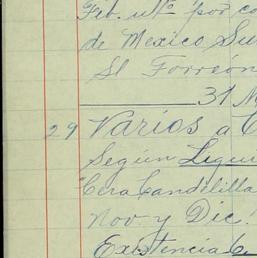 Feb. ulto por co
de Mexico Su
St Torreón
31
29 Varios a C
Según Liqu
Cera Candelilla
Nov y Dic.
Existencia C